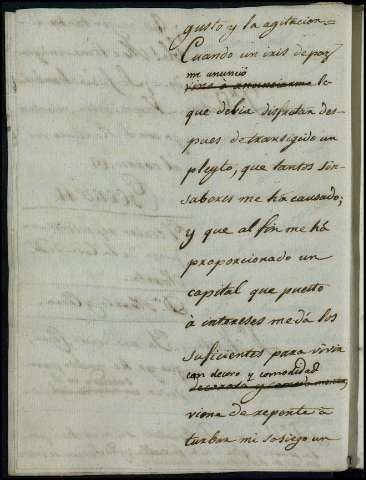 gusto y la agitacion =
Cuando un iris de paz
me anunció
vino à anunciarme lo
que debia disfrutar des-
pues de transigido un
pleyto, que tantos sin-
sabores me há causado;
y que al fin me há
proporcionado un
capital que puesto
à intereses me dá los
suficientes para vivir
con decoro y comodidad
viene de repente a
turbar mi sosiego un